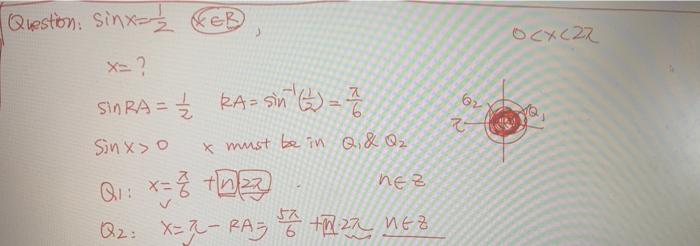 Question: sinx=1/2 (x∈R),
0<x<2π
x=?
sinRA = 1/2 RA = sin⁻¹(1/2) = π/6
Sinx>0 x must be in Q₁ & Q₂
Q₂ Q₁
π
Q1: x=π/6 + n 2π n∈Z
Q2: x=π-RA= 5π/6 + n·2π n∈Z